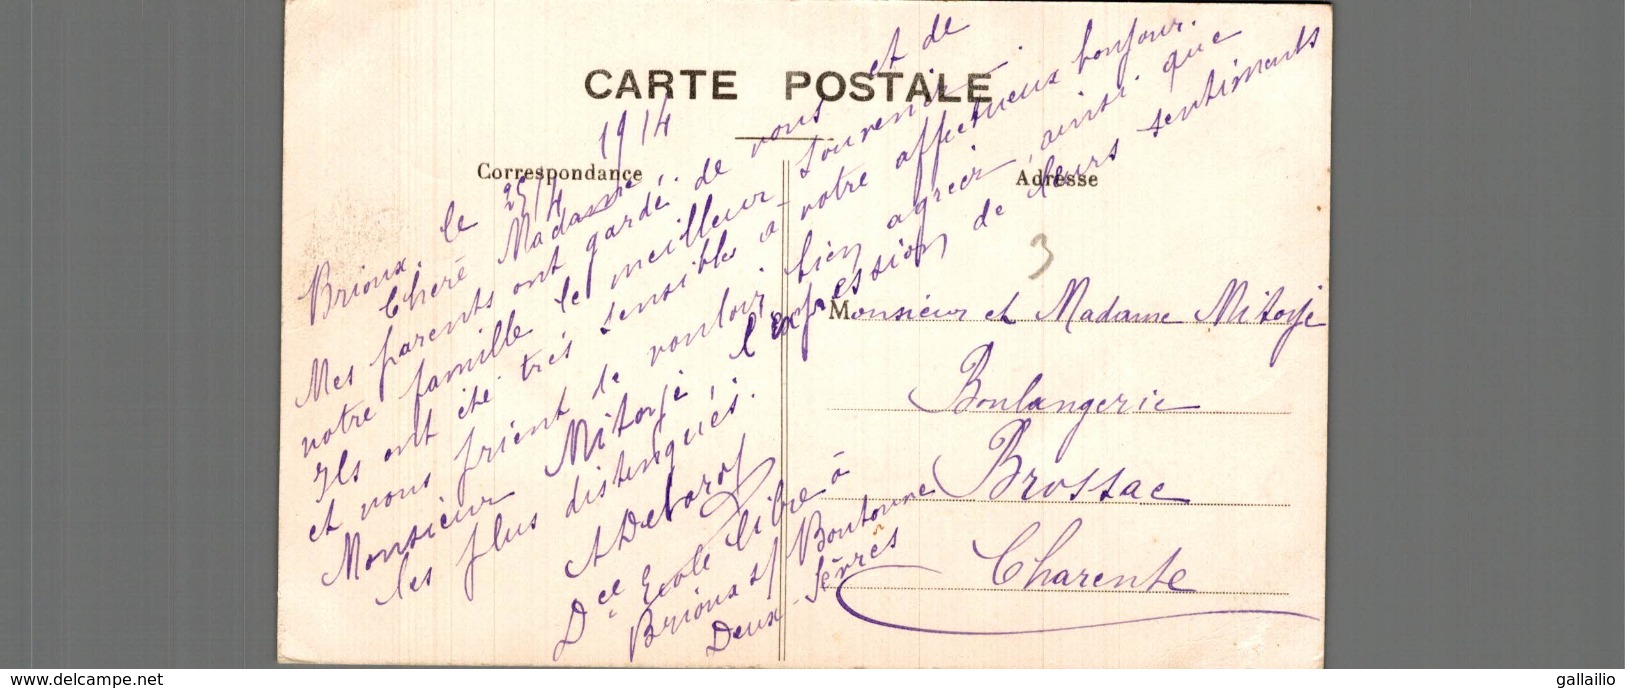 CARTE POSTALE
Correspondance
Adresse
Brioux. le 25/4 1914
Chère Madame.
Mes parents ont gardé de vous et de
votre famille le meilleur souvenir.
Ils ont été très sensible à votre affectueux bonjour.
et vous prient de vouloir bien agréer ainsi que
Monsieur Mitoye l'expression de leurs sentiments
les plus distingués.
Dce Ecole libre à
Brioux s/ Boutonne
Deux-Sèvres
3
Monsieur et Madame Mitoye
Boulangerie
Brossac
Charente
www.delcampe.net
gallailio